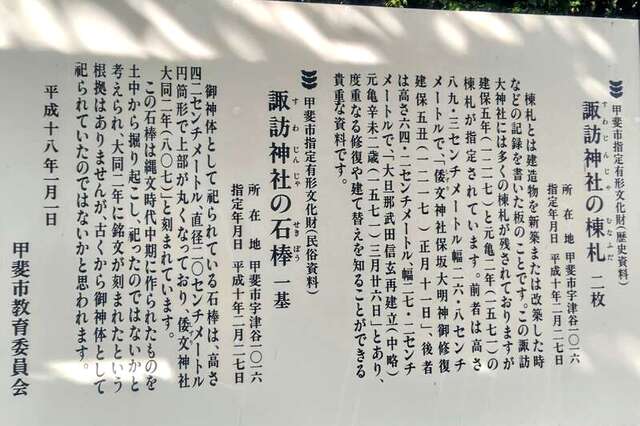 甲斐市指定有形文化財(歴史資料)
諏訪神社の棟札 二枚
すわじんじゃ むなふだ
所在地 甲斐市宇津谷一〇一六
指定年月日 平成十年二月二七日
棟札とは建造物を新築または改築した時
などの記録を書いた板のことです。この諏訪
大神社には多くの棟札が残されておりますが
建保五年(一二一七)と元亀二年(一五七一)の
棟札が指定されています。前者は高さ
八九・三センチメートル幅二六・八センチ
メートルで、「倭文神社保坂大明神御修復
建保五丑(一二一七)正月十一日」、後者
は高さ六四・二センチメートル、幅二七・二センチ
メートルで、「大旦那武田信玄再建立(中略)
元亀辛未二歳(一五七一)三月廿六日」とあり、
度重なる修復や建て替えを知ることができる
貴重な資料です。
甲斐市指定有形文化財(民俗資料)
諏訪神社の石棒 一基
すわじんじゃ せきぼう
所在地 甲斐市宇津谷一〇一六
指定年月日 平成十年二月二七日
御神体として祀られている石棒は、高さ
四二センチメートル、直径二〇センチメートル
円筒形で上部が丸くなっており、倭文神社
大同二年(八〇七)と刻まれています。
この石棒は縄文時代中期に作られたものを
土中から掘り起こし、祀ったのではないかと
考えられ、大同二年に銘文が刻まれたという
根拠はありませんが、古くから御神体として
祀られていたのではないかと思われます。
平成十八年一月一日
甲斐市教育委員会